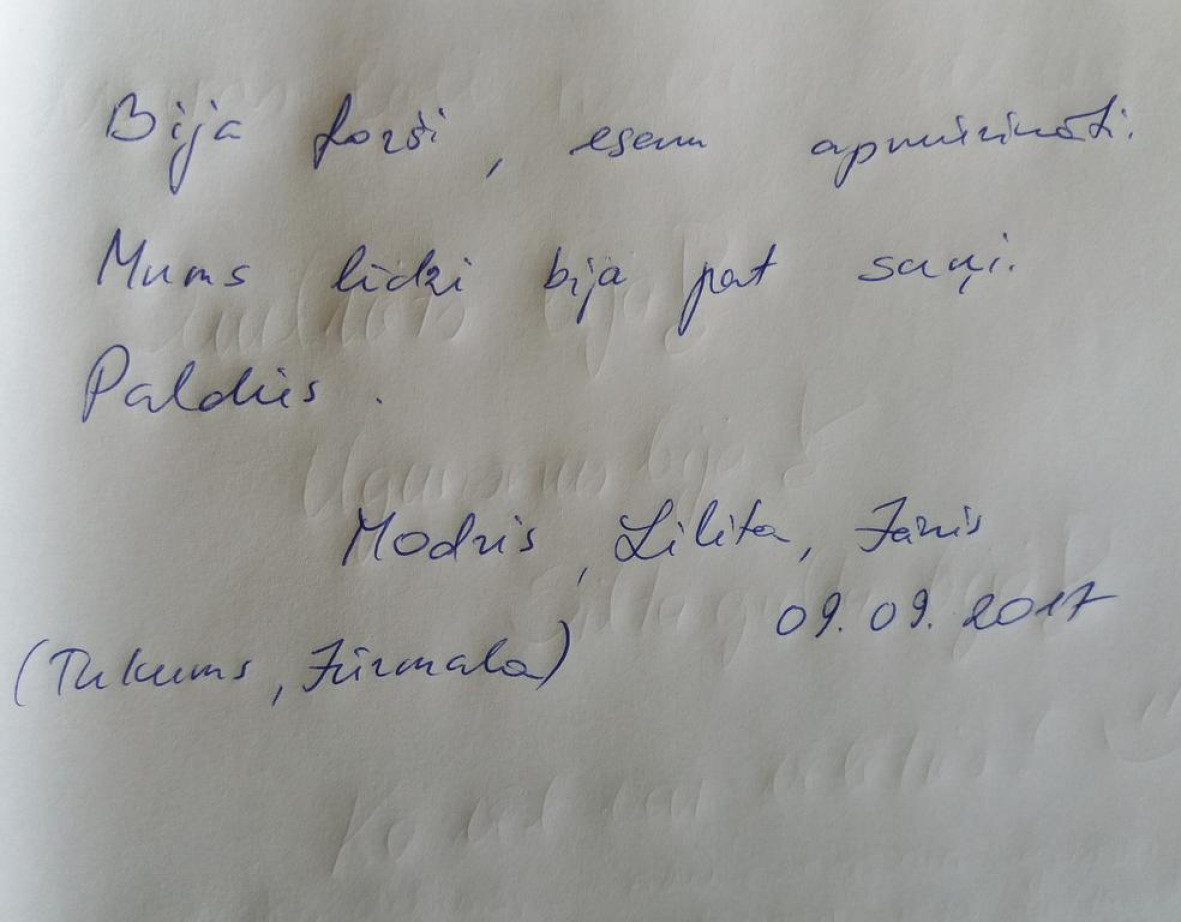 Bija forši, esam apmierināti.
Mums līdzi bija pat suņi.
Paldies.
Modris, Lilita, Jānis
09.09.2017
(Tukums, Jūrmala)